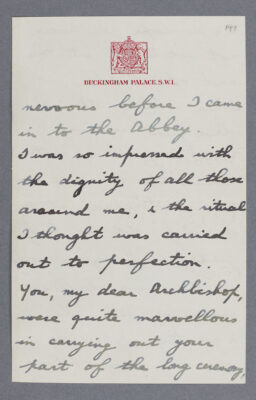 197
BUCKINGHAM PALACE, S.W.1.
nervous before I came
in to the Abbey.
I was so impressed with
the dignity of all those
around me, & the ritual
I thought was carried
out to perfection.
You, my dear Archbishop,
were quite marvellous
in carrying out your
part of the long ceremony,